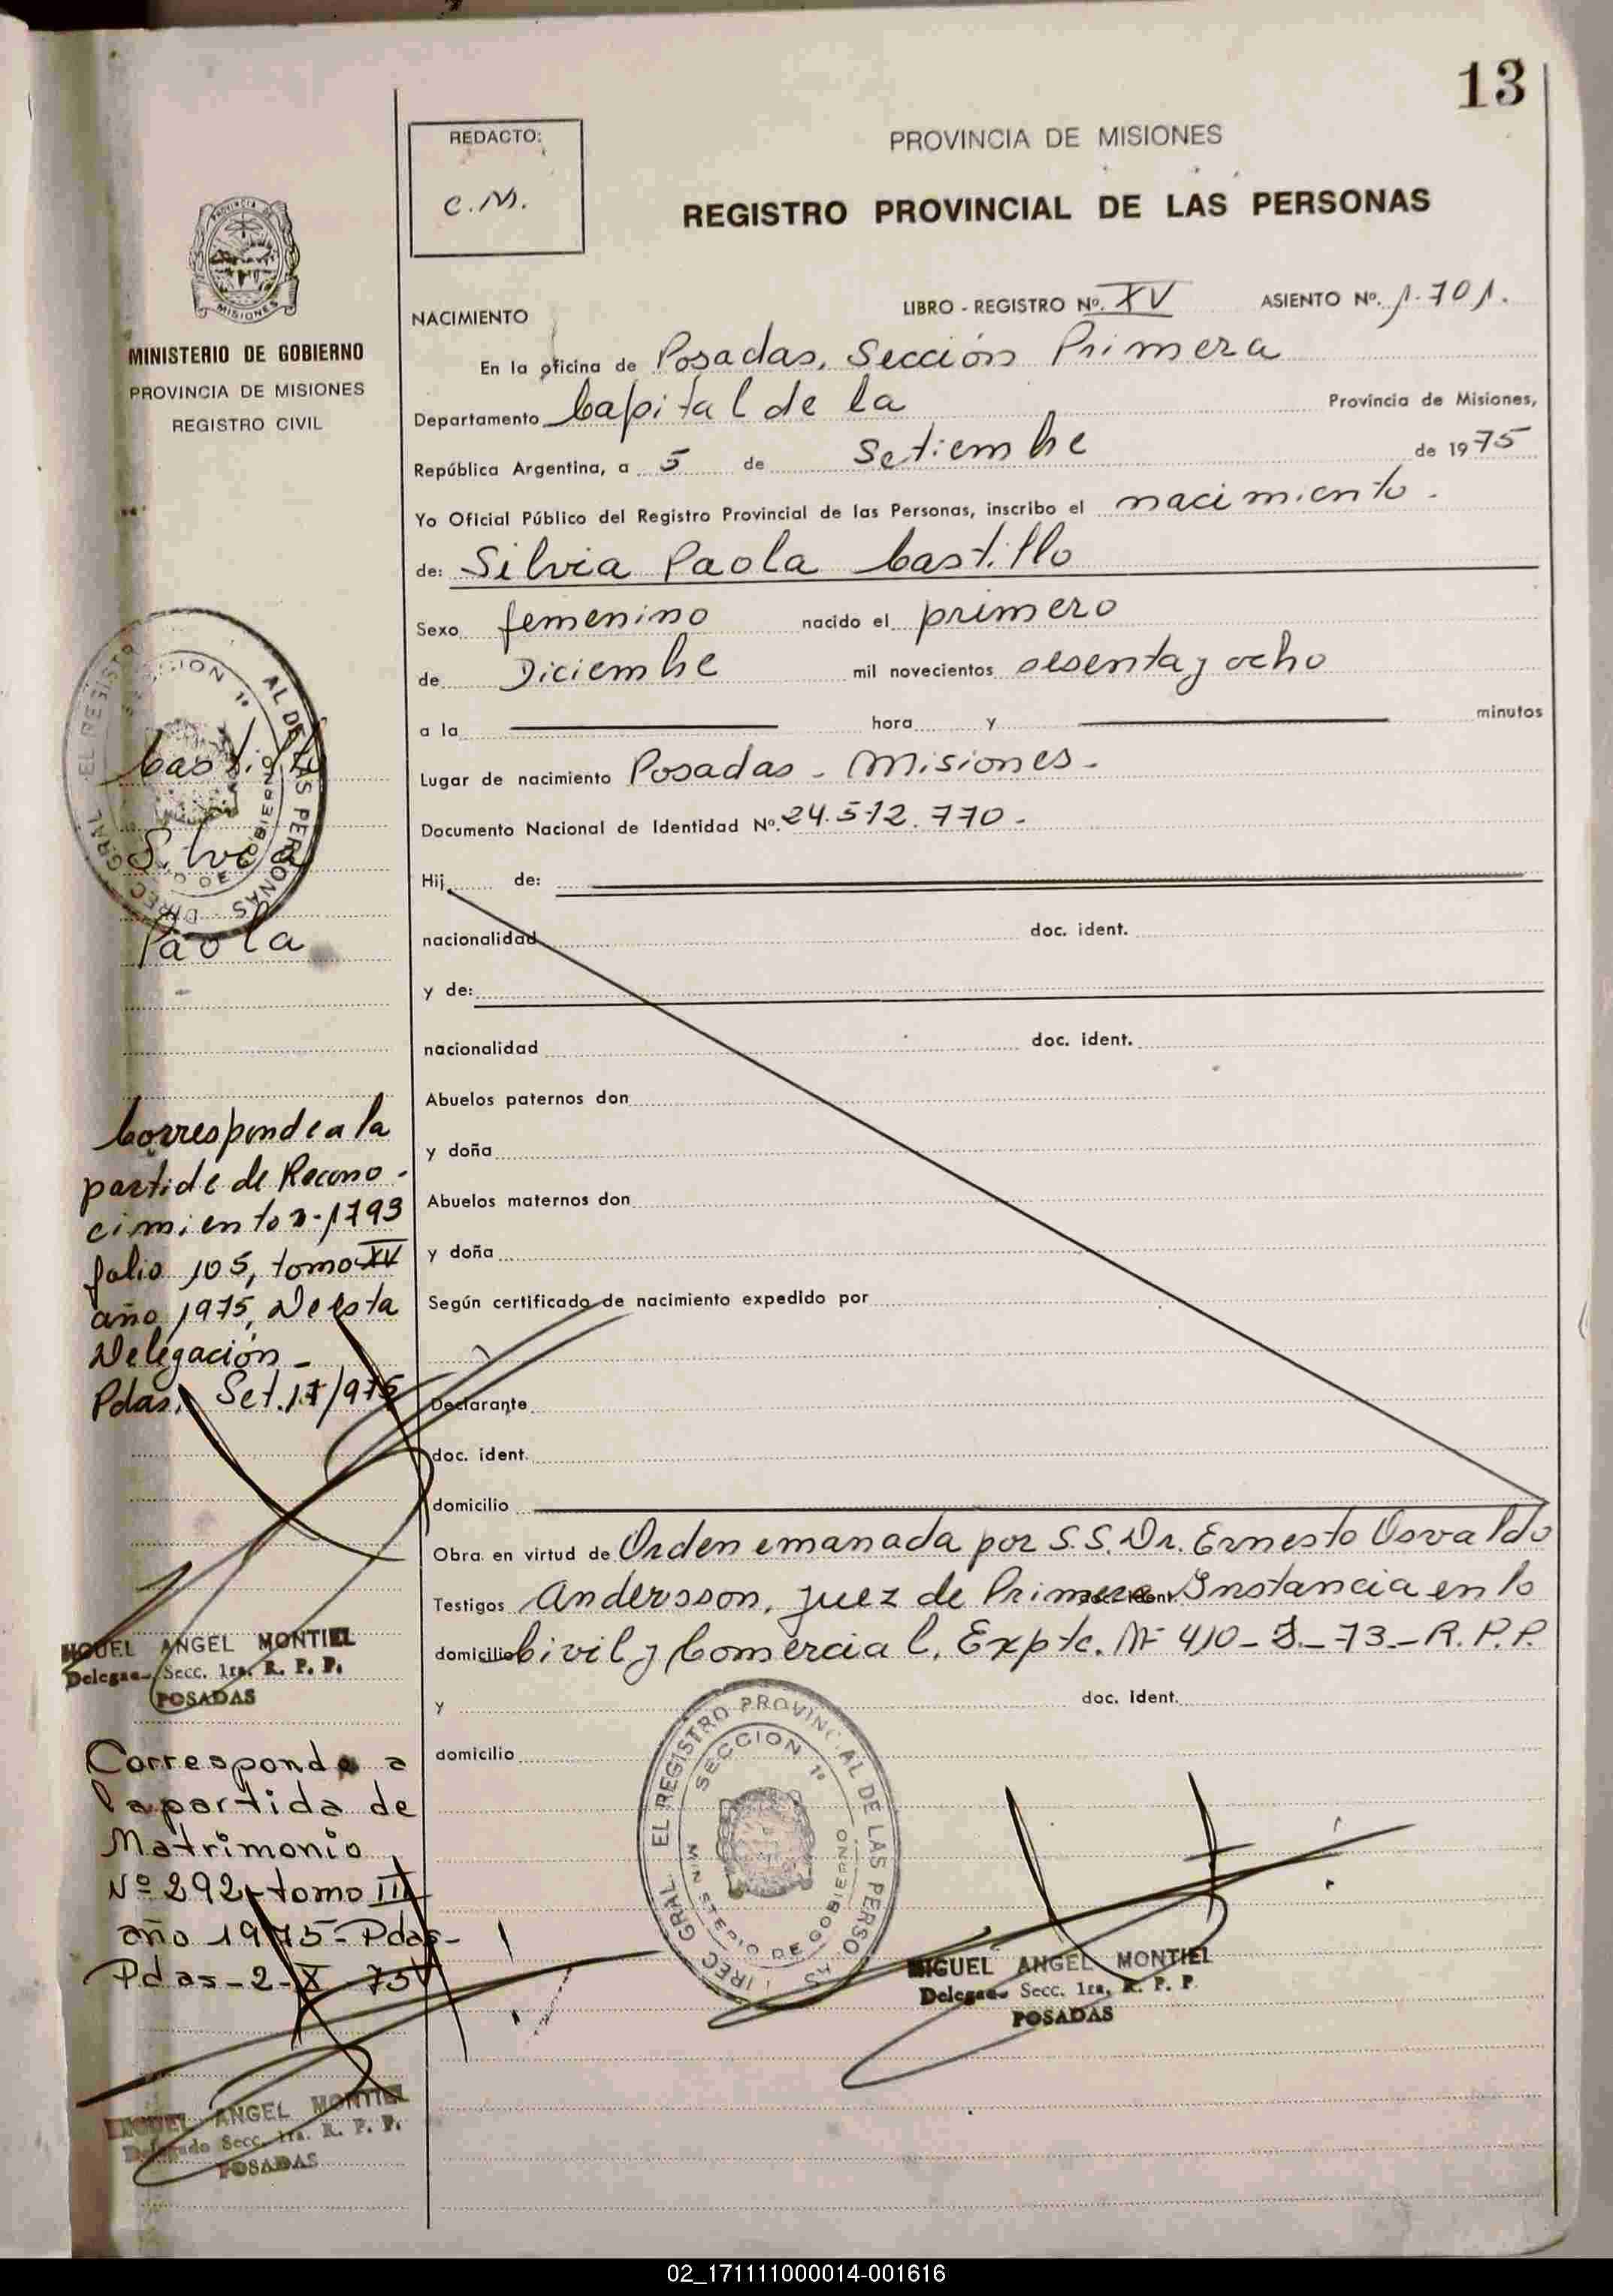 13
REDACTO:
C.M.
PROVINCIA DE MISIONES
REGISTRO PROVINCIAL DE LAS PERSONAS
MISIONES
MINISTERIO DE GOBIERNO
PROVINCIA DE MISIONES
REGISTRO CIVIL
NACIMIENTO
LIBRO - REGISTRO Nº. XV ASIENTO Nº. 1.701.
En la oficina de Posadas, Sección Primera
Departamento Capital de la Provincia de Misiones,
República Argentina, a 5 de Setiembre de 1975
Yo Oficial Público del Registro Provincial de las Personas, inscribo el nacimiento.
de: Silvia Paola Castillo
Sexo femenino nacido el primero
de Diciembre mil novecientos sesenta y ocho
a la hora y minutos
Lugar de nacimiento Posadas - Misiones -
Documento Nacional de Identidad Nº. 24.512.770 -
Hij de:
nacionalidad doc. ident.
y de:
nacionalidad doc. ident.
Abuelos paternos don
y doña
Abuelos maternos don
y doña
Según certificado de nacimiento expedido por
Declarante
doc. ident.
domicilio
Obra en virtud de Orden emanada por S.S. Dr. Ernesto Osvaldo
Testigos Andersson, juez de Primera Instancia en lo
domicilio Civil y Comercial, Expte. Nº 410- -73-R.P.P.
y doc. Ident.
domicilio
EL REGISTRO PROVINCIAL DE LAS PERSONAS
SECCION 1ª
MINISTERIO DE GOBIERNO
MIGUEL ANGEL MONTIEL
Delegado Secc. 1ra. R. P. P.
POSADAS
Castillo
Silvia
Paola
Corresponde a la
partida de Recono-
cimiento n-1793
folio 105, tomo XV
año 1975, De esta
Delegación -
Pdas, Set. 17/975
MIGUEL ANGEL MONTIEL
Delegado Secc. 1ra. R. P. P.
POSADAS
Corresponde a
la partida de
Matrimonio
Nº 292- tomo III
año 1975- Pdas-
Pdas-2-X-75
MIGUEL ANGEL MONTIEL
Delegado Secc. 1ra. R. P. P.
POSADAS
02_171111000014-001616